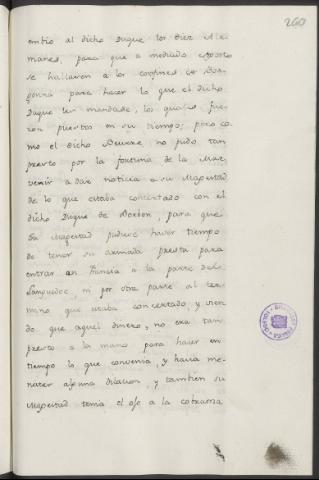 260
embio al dicho Duque los diez Ale-
manes, para que a mediado Agosto
se hallaren a los confines de Bor-
goña para hacer lo que el dicho
Duque les mandase, los quales fue-
ron puestos en su tiempo; pero co-
mo el dicho Beurre no pudo tan
presto por la fortuna de la Mar
venir a dar noticia a su Magestad
de lo que estaba concertado con el
dicho Duque de Borbon, para que
Su Magestad pudiese haver tiempo
de tener su armada presta para
entrar en Francia a la parte del
Lenguedoc, ni por otra parte al ter-
mino que estaba concertado, y vien-
do que aquel dinero, no era tan
presto a la mano para hacer en
tiempo lo que convenia, y havia me-
nester alguna dilacion, y tambien su
Magestad tenia el ojo a la